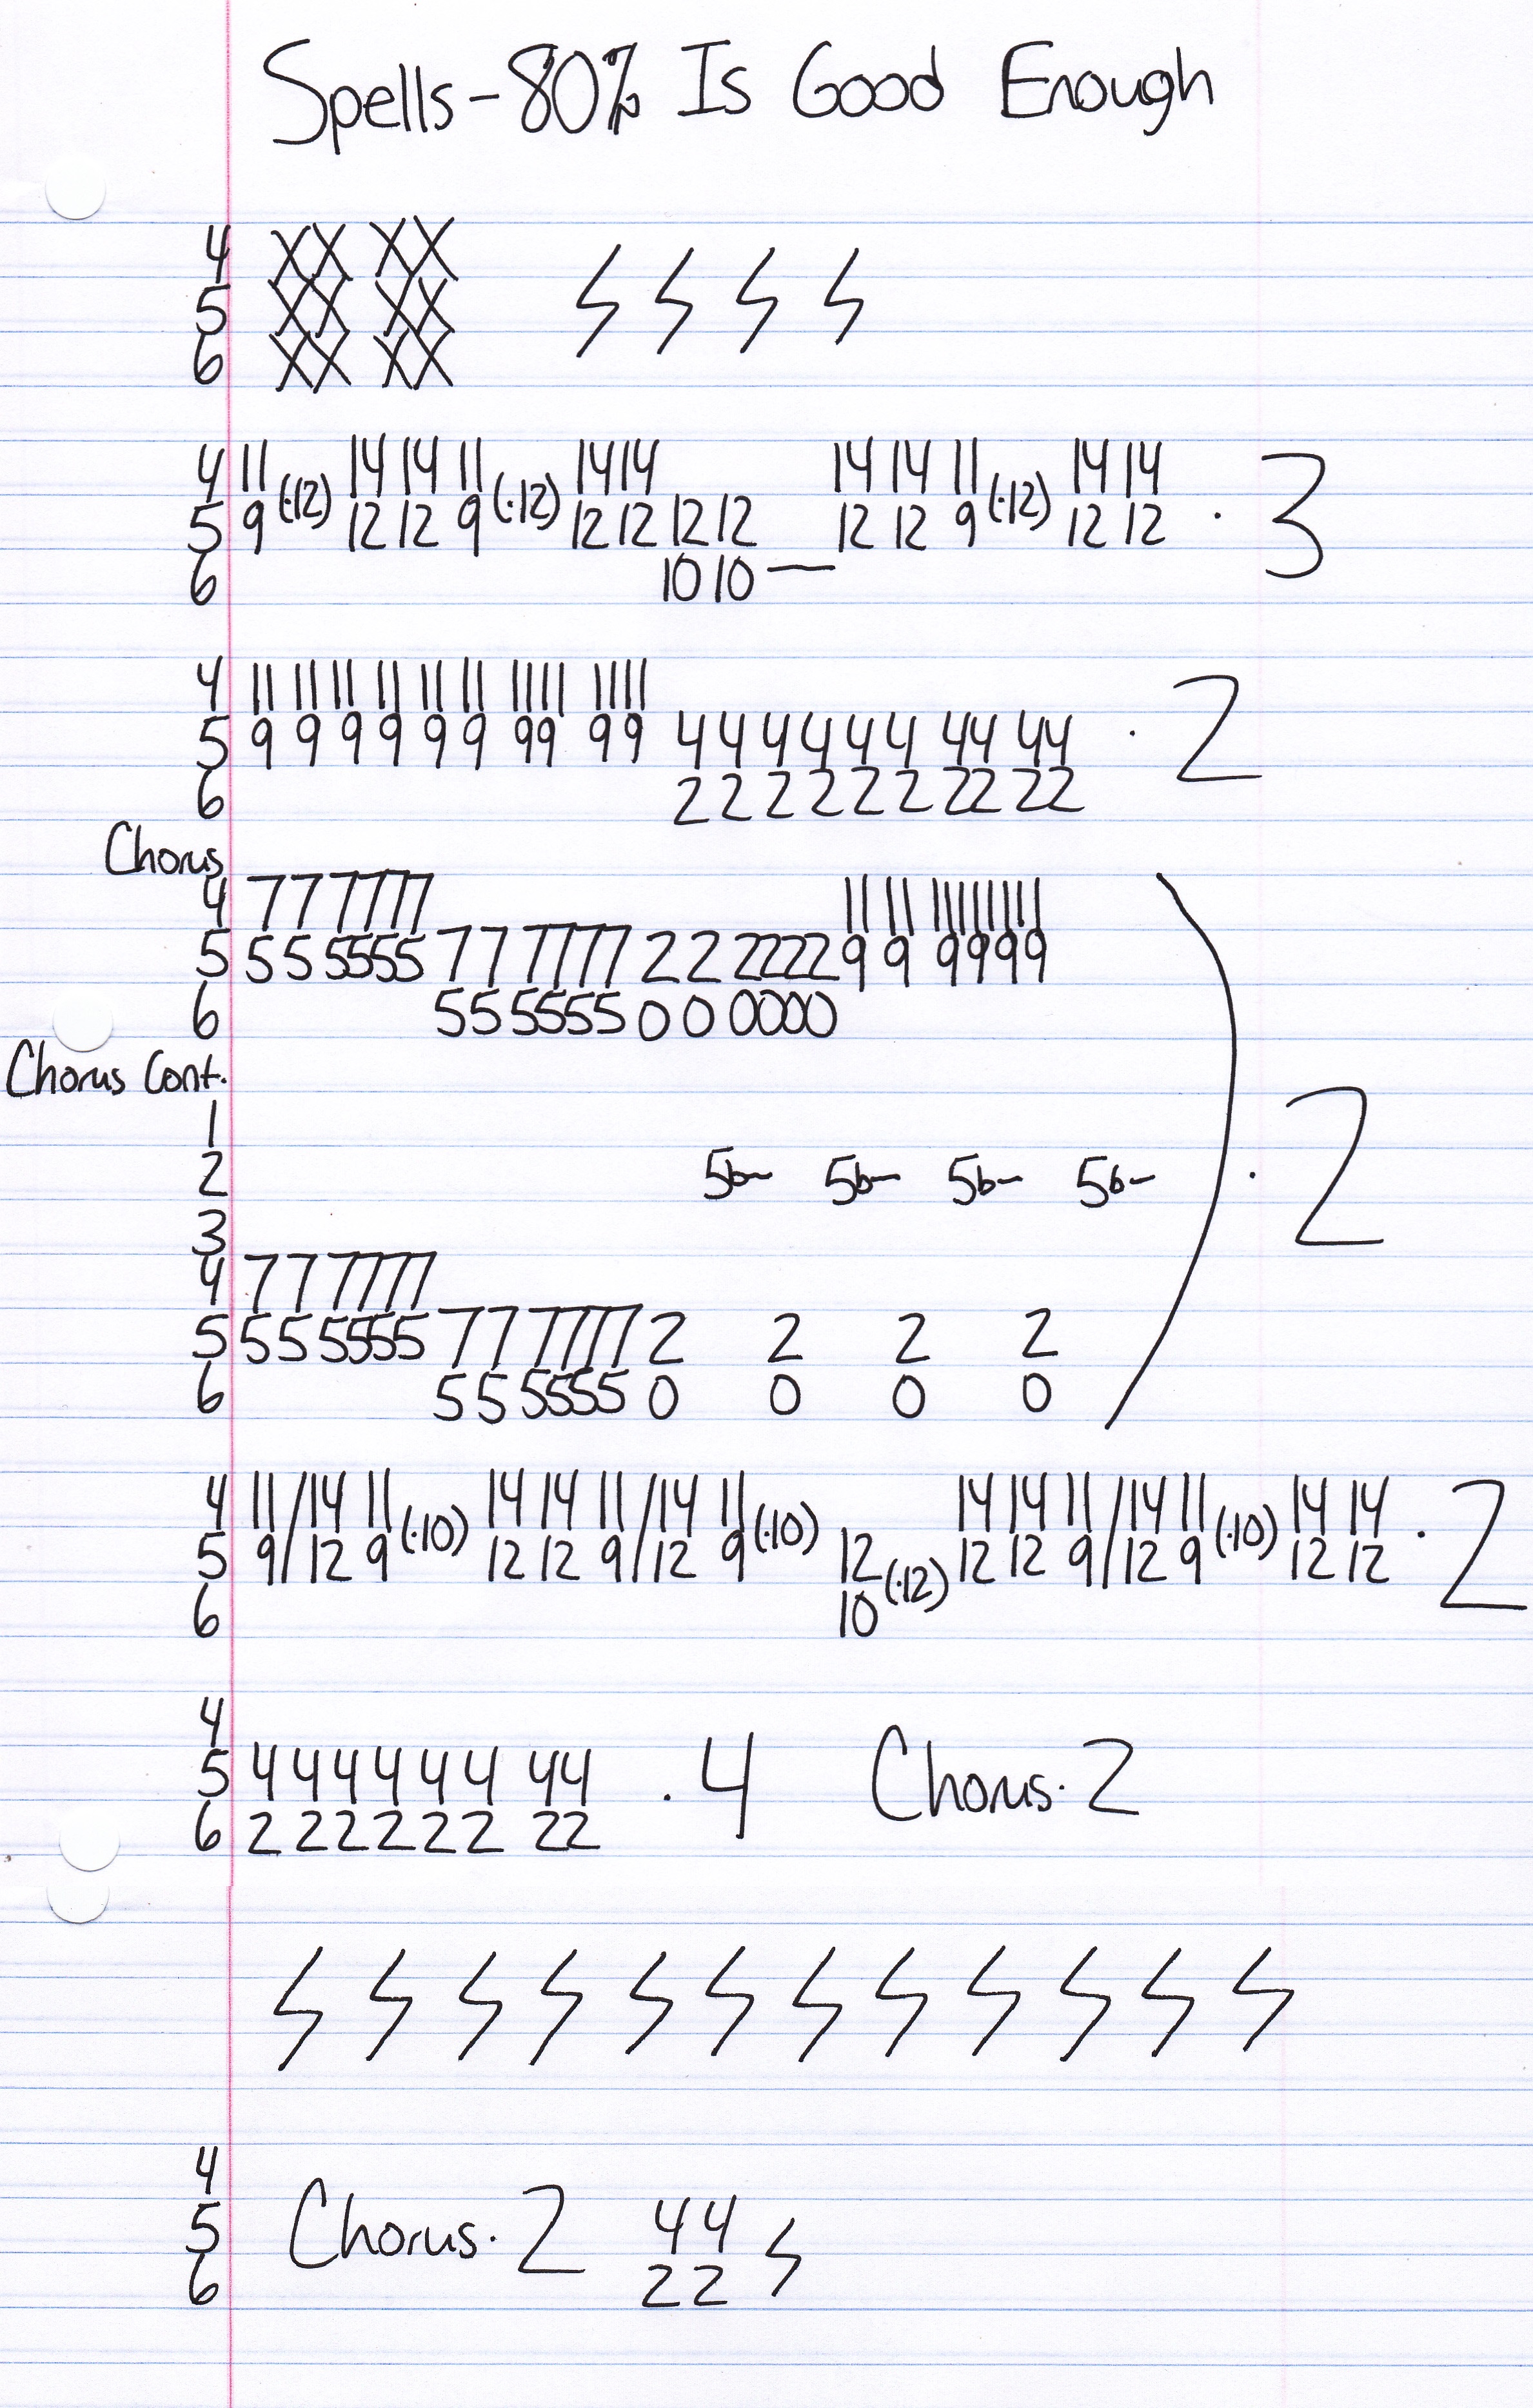 Spells - 80% Is Good Enough
4 XX XX
5 XX XX
6 XX XX
4 11 14 14 11 14 14 14 14 11 14 14
5 9 (·12) 12 12 9 (·12) 12 12 12 12 12 12 9 (·12) 12 12 · 3
6 10 10 —
4 11 11 11 11 11 11 11 11 11 11
5 9 9 9 9 9 9 99 99 4 4 4 4 4 4 44 44 · 2
6 2 2 2 2 2 2 22 22
Chorus
4 7 7 7777
5 5 5 5555 7 7 7777 2 2 2222 9 9 9999
6 5 5 5555 0 0 0000
Chorus Cont.
1
2 5b~ 5b~ 5b~ 5b~ · 2
3
4 7 7 7777
5 5 5 5555 7 7 7777 2 2 2 2
6 5 5 5555 0 0 0 0
4 11/14 11 14 14 11/14 11 14 14 11/14 11 14 14
5 9/12 9 (·10) 12 12 9/12 9 (·10) 12 (·12) 12 12 9/12 9 (·10) 12 12 · 2
6 10
4
5 4 4 4 4 4 4 44 · 4 Chorus · 2
6 2 2 2 2 2 2 22
4
5 Chorus · 2 4 4
6 2 2